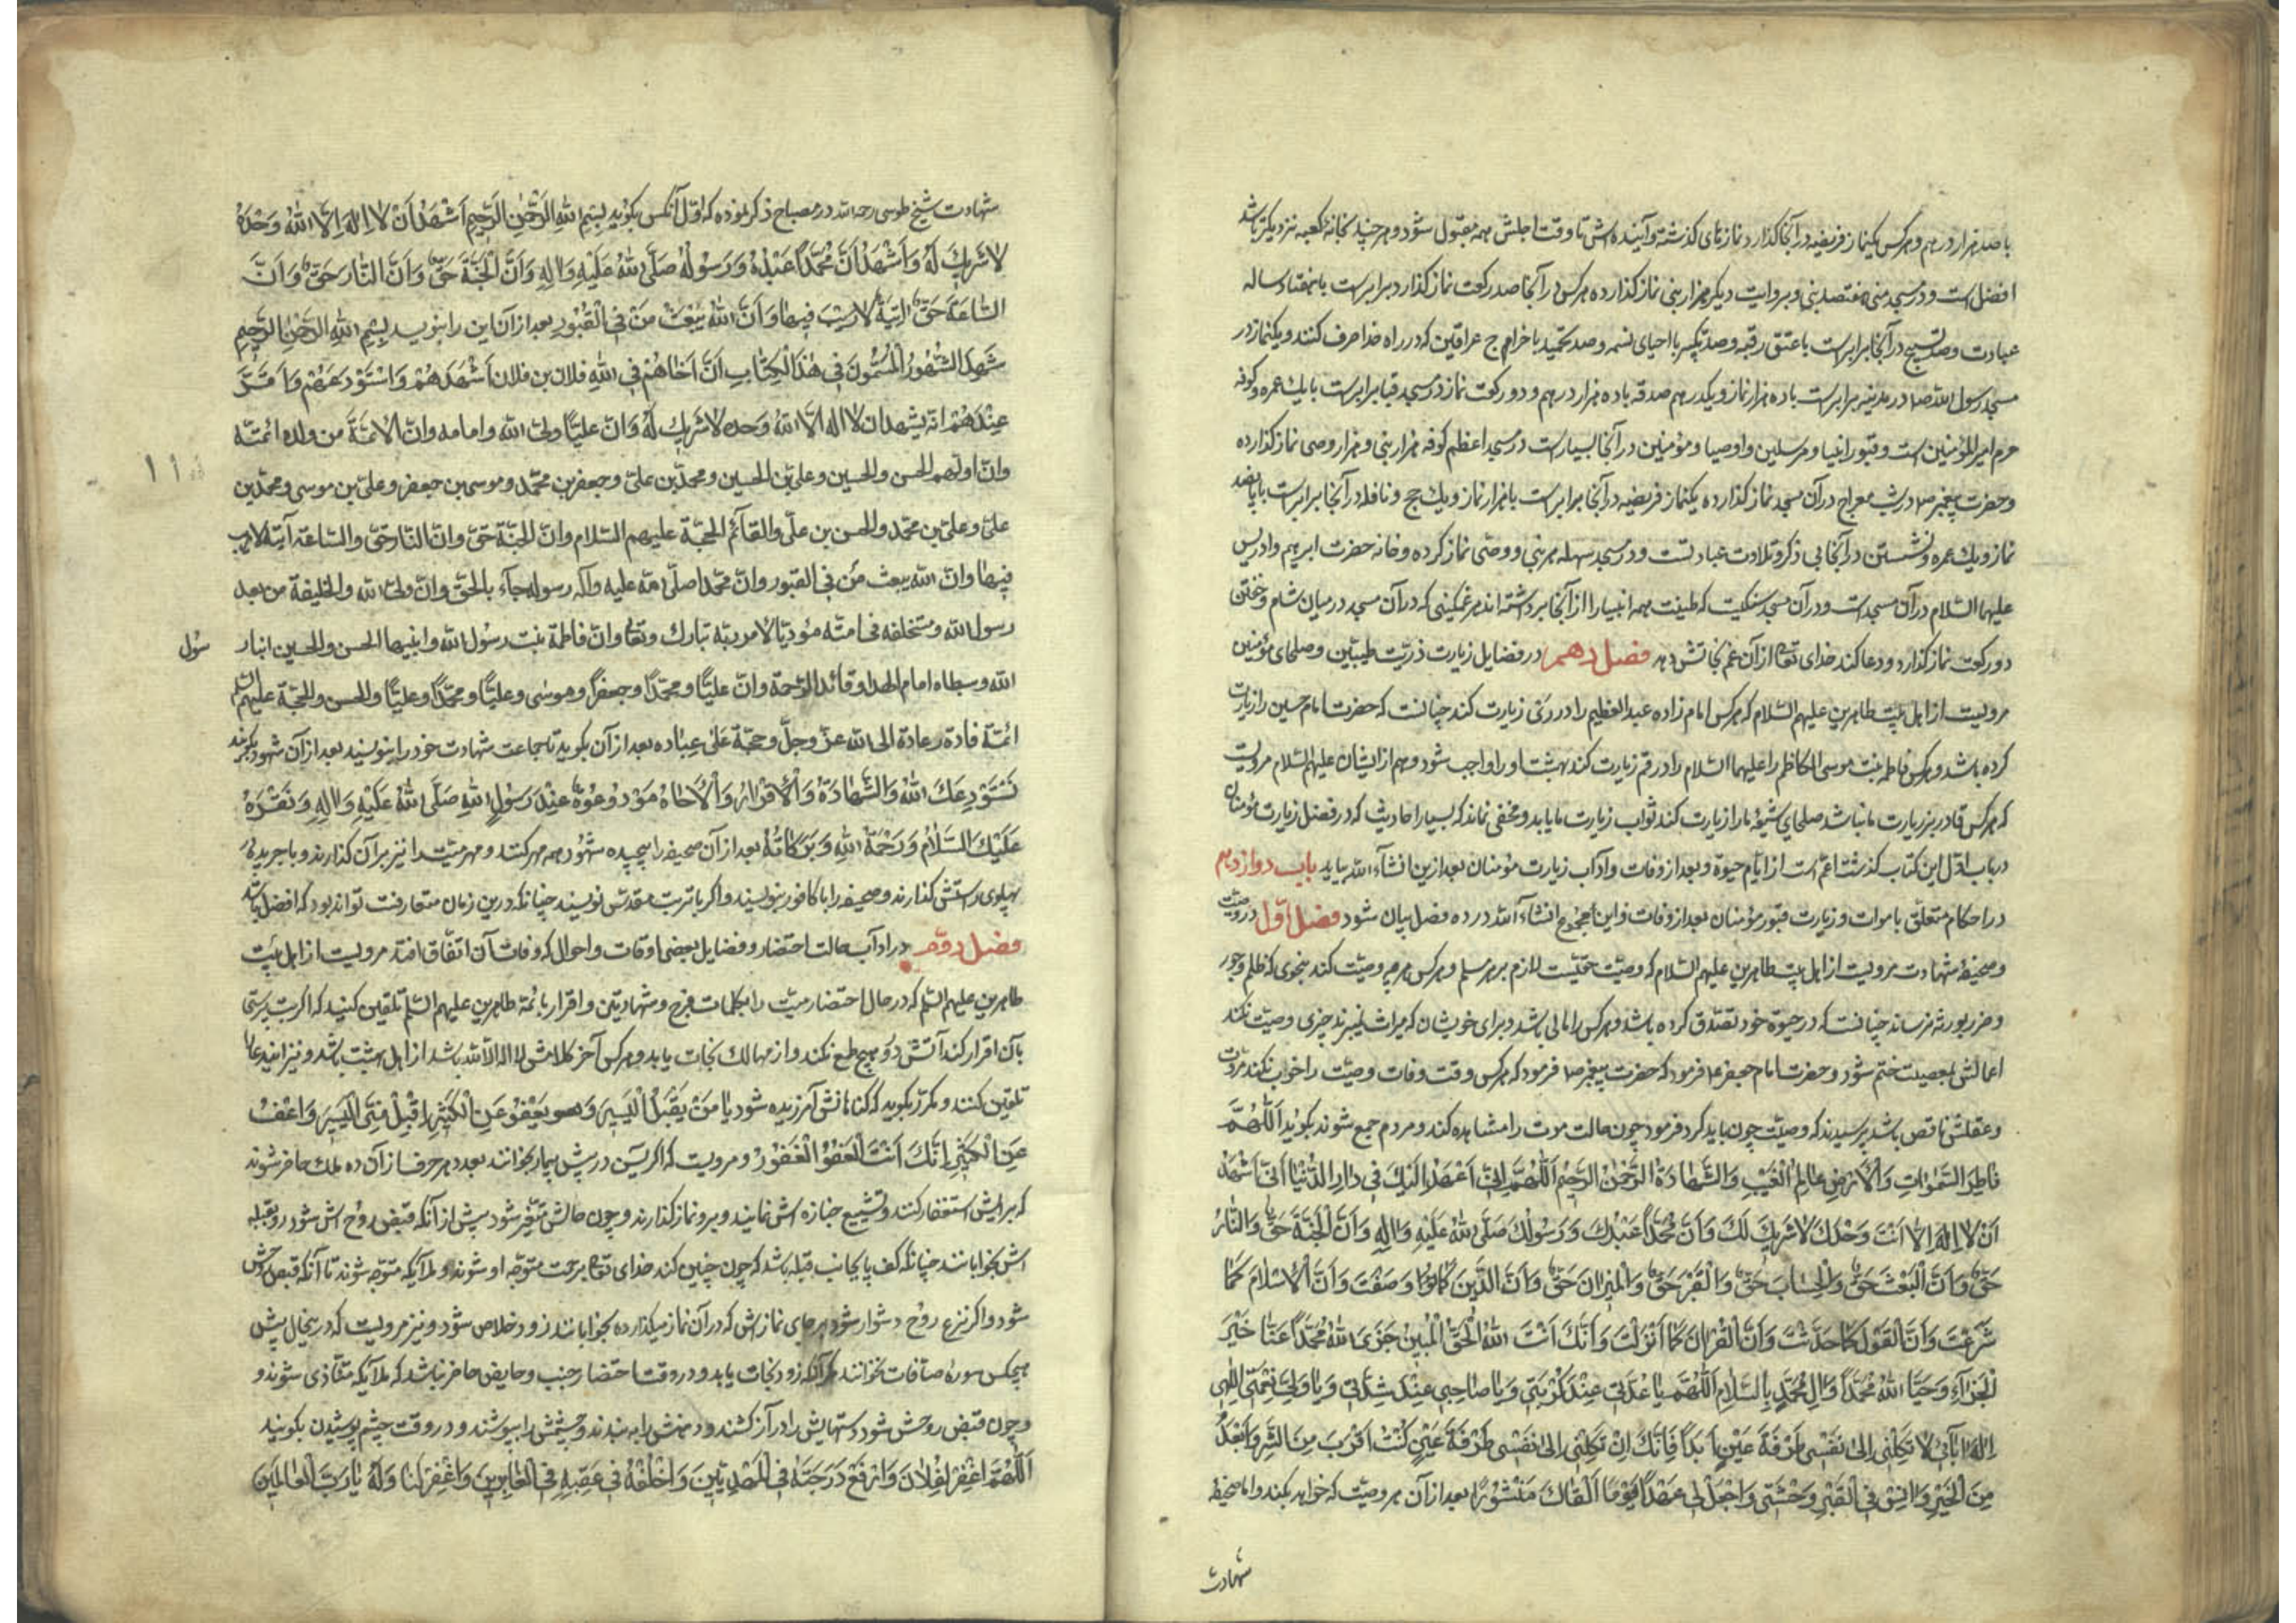 با صد هزار درهم و هر کس یکنماز فریضه در آنجا گذارد نمازهای گذشته و آینده‌اش تا وقت اجلش همه مقبول شود و هر چند بخانهٔ کعبه نزدیکتر باشد
افضل است و در مسجد منی هفتصد نبی و بروایت دیگر هزار نبی نماز گذارده هر کس در آنجا صد رکعت نماز گذارد برابرست با هفتاد ساله
عبادت و صد تسبیح در آنجا برابرست با عتق رقبه و صد تکبیر با احیای نسمه و صد تحمید با خراج عراقین که در راه خدا صرف کنند و یکنماز در
مسجد رسول الله ص در مدینه برابرست با ده هزار نماز و یکدرهم صدقه با ده هزار درهم و دو رکعت نماز در مسجد قبا برابرست با یك عمره و کوفه
حرم امیر المؤمنین است و قبور انبیا و مرسلین و اوصیا و مؤمنین در آنجا بسیارست در مسجد اعظم کوفه هزار نبی و هزار وصی نماز گذارده
و حضرت پیغمبر ص در شب معراج در آن مسجد نماز گذارده یکنماز فریضه در آنجا برابرست با هزار نماز و یك حج و نافله در آنجا برابرست با پانصد
نماز و یك عمره و نشستن در آنجا بی ذکر و تلاوت عبادتست و در مسجد سهله هر نبی و وصی نماز کرده و خانه حضرت ابرهیم و ادریس
علیهما السّلام در آن مسجد است و در آن مسجد سنگیست که طینت همه انبیا را از آنجا برداشته‌اند هر غمگینی که در آن مسجد در میان شام و خفتن
دو رکعت نماز گذارد و دعا کند خدای تعالی از آن غم نجاتش دهد فصل دهم در فضایل زیارت ذریّت طیّبین و صلحای مؤمنین
مرویست از اهل بیت طاهرین علیهم السّلام که هر کس امام زاده عبد العظیم را در ری زیارت کند چنانست که حضرت امام حسین را زیارت
کرده باشد و هر کس فاطمه بنت موسی الکاظم را علیهما السّلام در قم زیارت کند بهشت او را واجب شود و هم از ایشان علیهم السّلام مرویست
که هر کس قادر بزیارت ما نباشد صلحای شیعهٔ ما را زیارت کند ثواب زیارت ما یابد و مخفی نماند که بسیار احادیث که در فضل زیارت مؤمنان
در باب اوّل این کتاب گذشت اعمّ است از ایّام حیوة و بعد از وفات و آداب زیارت مؤمنان بعد ازین انشآء الله بیاید باب دوازدهم
در احکام متعلّق باموات و زیارت قبور مؤمنان بعد از وفات و این مجموع انشاء آلله در ده فصل بیان شود فصل اوّل در وصیّت
و صحیفهٔ شهادت مرویست از اهل بیت طاهرین علیهم السّلام که وصیّت حقّیست لازم بر هر مسلم و هر کس هر چه وصیّت کند بنحوی که ظلم و جور
و ضرر بورثه نرساند چنانست که در حیوة خود تصدّق کرده باشد و هر کس را مالی باشد و برای خویشان که میراث نمیبرند چیزی وصیّت نکند
اعمالش بمعصیت ختم شود و حضرت امام جعفر ع فرمود که حضرت پیغمبر ص فرمود که هر کس وقت وفات وصیّت را خوب نکند مروّت
و عقلش ناقص باشد پرسیدند که وصیّت چون باید کرد فرمود چون حالت موت را مشاهده کند و مردم جمع شوند بگوید اَللّٰهُمَّ
فَاطِرَ السَّمٰوَاتِ وَالْأَرْضِ عَالِمَ الْغَيْبِ وَالشَّهَادَةِ الرَّحْمٰنَ الرَّحِيمَ اَللّٰهُمَّ اِنِّى اَعْهَدُ اِلَيْكَ فِى دَارِ الدُّنْيَا اَنِّى اَشْهَدُ
اَنْ لَا اِلٰهَ اِلَّا اَنْتَ وَحْدَكَ لَا شَرِيكَ لَكَ وَاَنَّ مُحَمَّدًا عَبْدُكَ وَرَسُولُكَ صَلَّى اللهُ عَلَيْهِ وَاٰلِهِ وَاَنَّ الْجَنَّةَ حَقٌّ وَالنَّارَ
حَقٌّ وَاَنَّ الْبَعْثَ حَقٌّ وَالْحِسَابَ حَقٌّ وَالْقَبْرَ حَقٌّ وَالْمِيزَانَ حَقٌّ وَاَنَّ الدِّينَ كَمَا وَصَفْتَ وَاَنَّ الْاِسْلَامَ كَمَا
شَرَعْتَ وَاَنَّ الْقَوْلَ كَمَا حَدَّثْتَ وَاَنَّ الْقُرْاٰنَ كَمَا اَنْزَلْتَ وَاَنَّكَ اَنْتَ اللهُ الْحَقُّ الْمُبِينُ جَزَى اللهُ مُحَمَّدًا عَنَّا خَيْرَ
الْجَزَآءِ وَحَيَّا اللهُ مُحَمَّدًا وَاٰلَ مُحَمَّدٍ بِالسَّلَامِ اَللّٰهُمَّ يَا عُدَّتِى عِنْدَ كُرْبَتِى وَيَا صَاحِبِى عِنْدَ شِدَّتِى وَيَا وَلِىَّ نِعْمَتِى اِلٰهِى
وَاِلٰهَ اٰبَآئِى لَا تَكِلْنِى اِلٰى نَفْسِى طَرْفَةَ عَيْنٍ اَبَدًا فَاِنَّكَ اِنْ تَكِلْنِى اِلٰى نَفْسِى طَرْفَةَ عَيْنٍ كُنْتُ اَقْرَبَ مِنَ الشَّرِّ وَاَبْعَدَ
مِنَ الْخَيْرِ وَاٰنِسْ فِى الْقَبْرِ وَحْشَتِى وَاجْعَلْ لِى عَهْدًا يَوْمَ اَلْقَاكَ مَنْشُورًا بعد از آن هر وصیّت که خواهد بکند و اما صحیفهٔ
شهادت
شهادت شیخ طوسی رحمه الله در مصباح ذکر نموده که اوّل آنکس بگوید بِسْمِ اللهِ الرَّحْمٰنِ الرَّحِيمِ اَشْهَدُ اَنْ لَا اِلٰهَ اِلَّا اللهُ وَحْدَهُ
لَا شَرِيكَ لَهُ وَاَشْهَدُ اَنَّ مُحَمَّدًا عَبْدُهُ وَرَسُولُهُ صَلَّى اللهُ عَلَيْهِ وَاٰلِهِ وَاَنَّ الْجَنَّةَ حَقٌّ وَاَنَّ النَّارَ حَقٌّ وَاَنَّ
السَّاعَةَ حَقٌّ اٰتِيَةٌ لَا رَيْبَ فِيهَا وَاَنَّ اللهَ يَبْعَثُ مَنْ فِى الْقُبُورِ بعد از آن این را بنویسد بِسْمِ اللهِ الرَّحْمٰنِ الرَّحِيمِ
شَهِدَ الشُّهُودُ الْمُسَمَّوْنَ فِى هٰذَا الْكِتَابِ اَنَّ اَخَاهُمْ فِى اللهِ فلان بن فلان اَشْهَدَهُمْ وَاسْتَوْدَعَهُمْ وَاَقَرَّ
عِنْدَهُمْ انّه یشهد ان لا اله الّا اللهُ وحده لا شَرِيكَ لَهُ وَانّ علیًّا ولیّ الله وامامه وانّ الائمّةَ من ولده ائمّته
وانّ اوّلهم الحسن والحسین وعلیّ بن الحسین ومحمّد بن علیّ وجعفر بن محمّد وموسی بن جعفر وعلیّ بن موسی ومحمّد بن
علیّ وعلیّ بن محمّد والحسن بن علیّ والقآئم الحجّة علیهم السّلام وانّ الجنّة حقّ وانّ النّار حقّ والسّاعة آتیة لا ریب
فیها وانّ الله یبعث من فی القبور وانّ محمّدا صلّی الله علیه وآله رسوله جآء بالحقّ وانّ ولیّ الله والخلیفة من بعد
رسول الله ومستخلفه فی امّته مؤدّیًا لامر ربّه تبارك وتعالی وانّ فاطمة بنت رسول الله وابنیها الحسن والحسین ابنا ر
سول
الله وسبطاه اماما الهدی وقائدا الرّحمة وانّ علیًّا ومحمّدًا وجعفرًا وموسی وعلیًّا ومحمّدًا وعلیًّا والحسن والحجّة علیهم السّلام
ائمّة قادة دعاة الی الله عزّ وجلّ وحجّة عَلٰی عباده بعد از آن بگوید تا جماعت شهادت خود را بنویسند بعد از آن شهود بگویند
نَسْتَوْدِعُكَ اللهَ وَالشَّهَادَةُ وَالْاِقْرَارُ وَالْاِخَاءُ مَوْدُوعَةٌ عِنْدَ رَسُولِ اللهِ صَلَّى اللهُ عَلَيْهِ وَاٰلِهِ وَنَقْرَءُ
عَلَيْكَ السَّلَامُ وَرَحْمَةُ اللهِ وَبَرَكَاتُهُ بعد از آن صحیفه را پیچیده شهود همه مهر کنند و مهر میّت را نیز بر آن گذارند و با جریدهٔ
پهلوی راستش گذارند و صحیفه را با کافور بنویسند و اگر با تربت مقدّس نویسند چنانکه درین زمان متعارفست تواند بود که افضل باشد
فصل دوّم در آداب حالت احتضار و فضایل بعضی اوقات و احوال که وفات آن اتّفاق افتد مرویست از اهل بیت
طاهرین علیهم السّلم که در حال احتضار میّت را بکلمات فرج و شهادتین و اقرار بائمّهٔ طاهرین علیهم السّلم تلقین کنید که اگر بت پرستی
بآن اقرار کند آتش دوزخ طمع نکند و از مهالك نجات یابد و هر کس آخر کلامش لا اله الّا الله باشد از اهل بهشت باشد و نیز این دعا
تلقین کنند و مکرّر بگوید که گناهانش آمرزیده شود يَا مَنْ يَقْبَلُ الْيَسِيرَ وَهو يَعْفُو عَنِ الْكَثِيرِ اِقْبَلْ مِنِّى الْيَسِيرَ وَاعْفُ
عَنِ الْكَثِيرِ اِنَّكَ اَنْتَ الْعَفُوُّ الْغَفُورُ و مرویست که اگر یس در پیش بیمار بخوانند بعدد هر حرف از آن ده ملك حاضر شوند
که برایش استغفار کنند و تشییع جنازه اش نمایند و برو نماز گذارند و چون حالش متغیّر شود پیش از آنکه قبض روح اش شود رو بقبله
اش بخوابانند چنانکه کف پا بجانب قبله باشد که چون چنین کند خدای تعالی برحمت متوجّه او شوند و ملآیکه متوجّه شوند تا آنکه قبض روحش
شود و اگر نزع روح دشوار شود بر جای نمازش که در آن نماز میگذارده بخوابانند زود خلاص شود و نیز مرویست که در ینحال پیش
هیچکس سورهٔ صآفات نخوانند مگر آنکه زود نجات یابد و در وقت احتضار جنب و حایض حاضر نباشد که ملآیکه متأذّی شوند و
چون قبض روحش شود دستهایش را دراز کشند و دهنش را به بندند و چشمش را بپوشند و در وقت چشم پوشیدن بگویند
اَللّٰهُمَّ اغْفِرْ لِفُلَانَ وَارْفَعْ دَرَجَتَهُ فِى الْمَهْدِيِّينَ وَاخْلُفْهُ فِى عَقِبِهِ فِى الْغَابِرِينَ وَاغْفِرْ لَنَا وَلَهُ يَا رَبَّ الْعَالَمِينَ